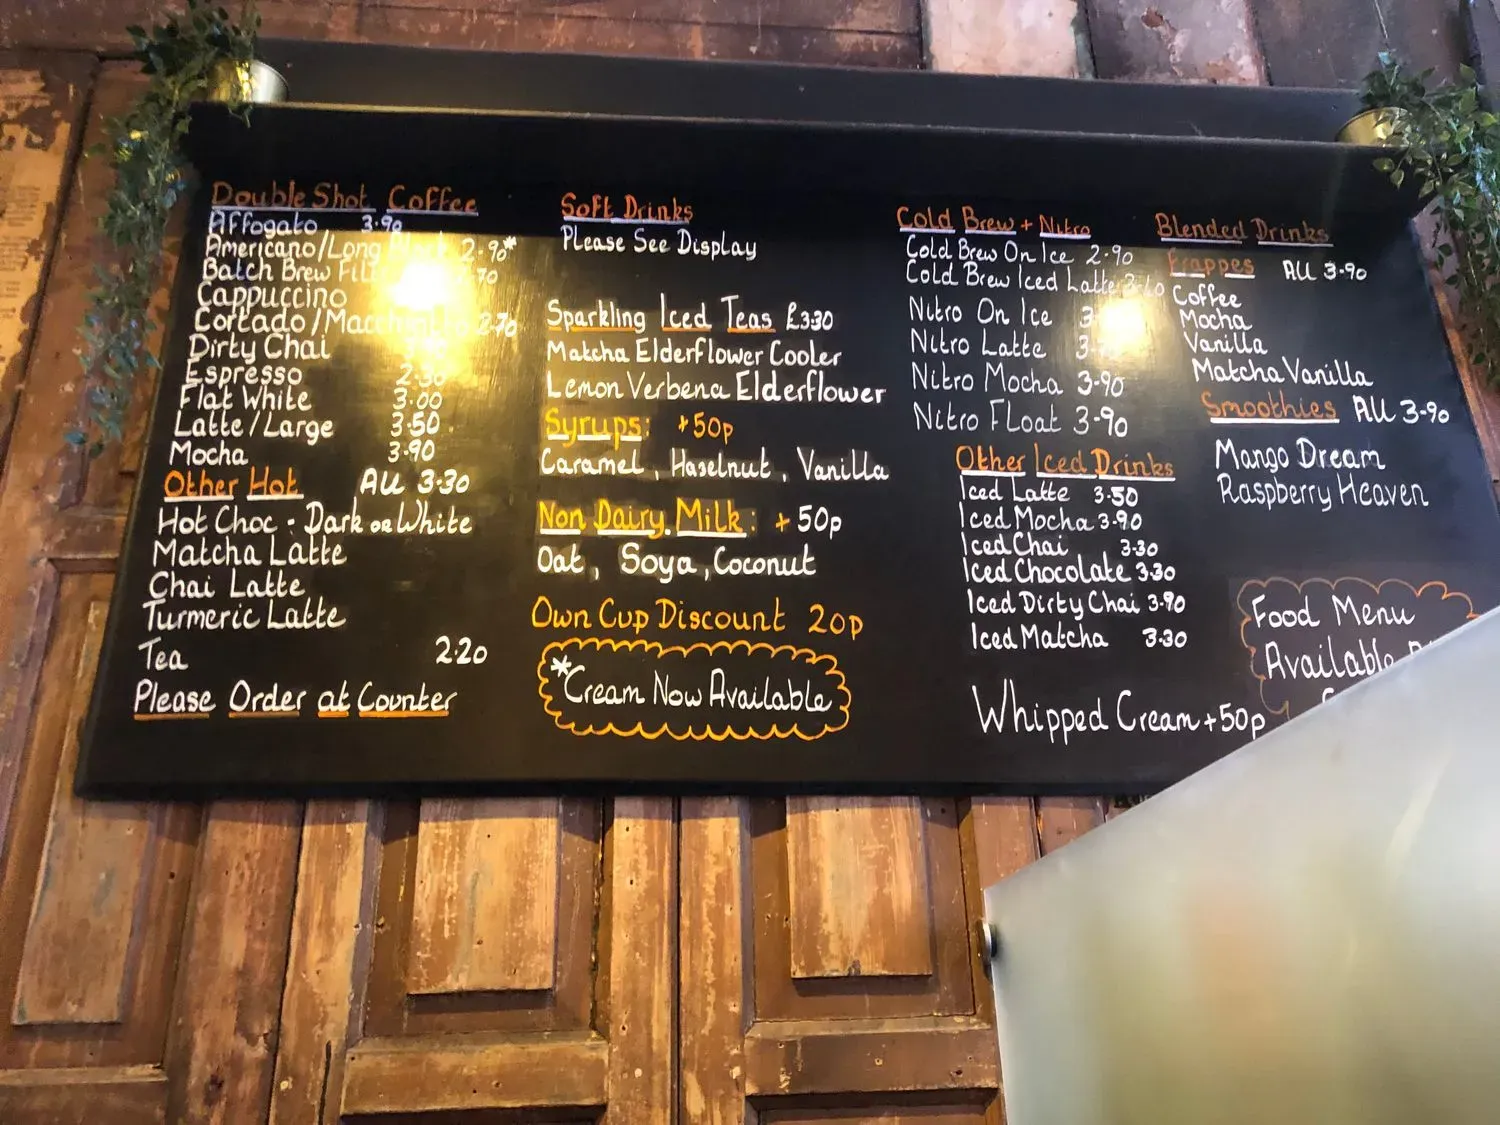 Double Shot Coffee
Affogato 3.90
Americano/Long 2.90*
Batch Brew
Cappuccino
Cortado/Macchiato 2.70
Dirty Chai
Espresso 2.30
Flat White 3.00
Latte/Large 3.50
Mocha 3.90
Other Hot All 3.30
Hot Choc - Dark or White
Matcha Latte
Chai Latte
Turmeric Latte
Tea 2.20
Please Order at Counter
Soft Drinks
Please See Display
Sparkling Iced Teas £3.30
Matcha Elderflower Cooler
Lemon Verbena Elderflower
Syrups: +50p
Caramel, Haselnut, Vanilla
Non Dairy Milk: + 50p
Oat, Soya, Coconut
Own Cup Discount 20p
*Cream Now Available
Cold Brew + Nitro
Cold Brew On Ice 2.90
Cold Brew Iced Latte
Nitro On Ice
Nitro Latte
Nitro Mocha 3.90
Nitro Float 3.90
Other Iced Drinks
Iced Latte 3.50
Iced Mocha 3.90
Iced Chai 3.30
Iced Chocolate 3.30
Iced Dirty Chai 3.90
Iced Matcha 3.30
Whipped Cream +50p
Blended Drinks
Frappes All 3.90
Coffee
Mocha
Vanilla
Matcha Vanilla
Smoothies All 3.90
Mango Dream
Raspberry Heaven
Food Menu
Available